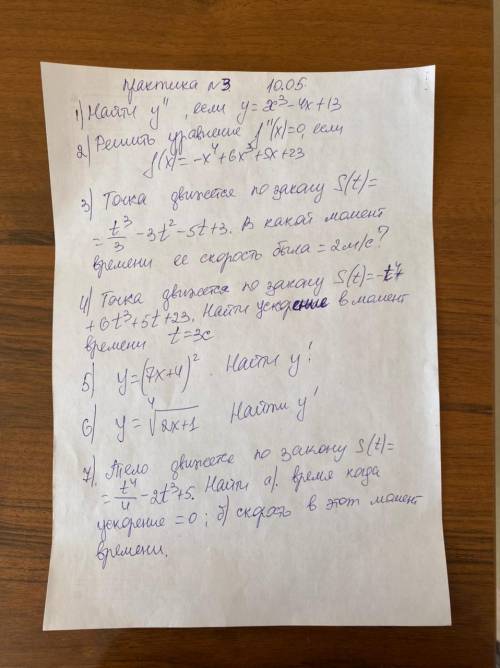 практика №3 10.05
1) Найти y'', если y = x³-4x+13
2) Решить уравнение f''(x)=0, если
f(x)= -x⁴+6x³+5x+23
3) Точка движется по закону S(t)=
= t³/3 -3t²-5t+3. В какой момент
времени ее скорость была = 2м/с?
4) Точка движется по закону S(t)=-t⁴+
+6t³+5t+23. Найти ускорение в момент
времени t=3c
5) y=(7x+4)². Найти y'
6) y= ⁴√2x+1 Найти y'
7). Тело движется по закону S(t)=
= t⁴/4 -2t³+5. Найти а). время когда
ускорение =0; б) скорость в этот момент
времени.